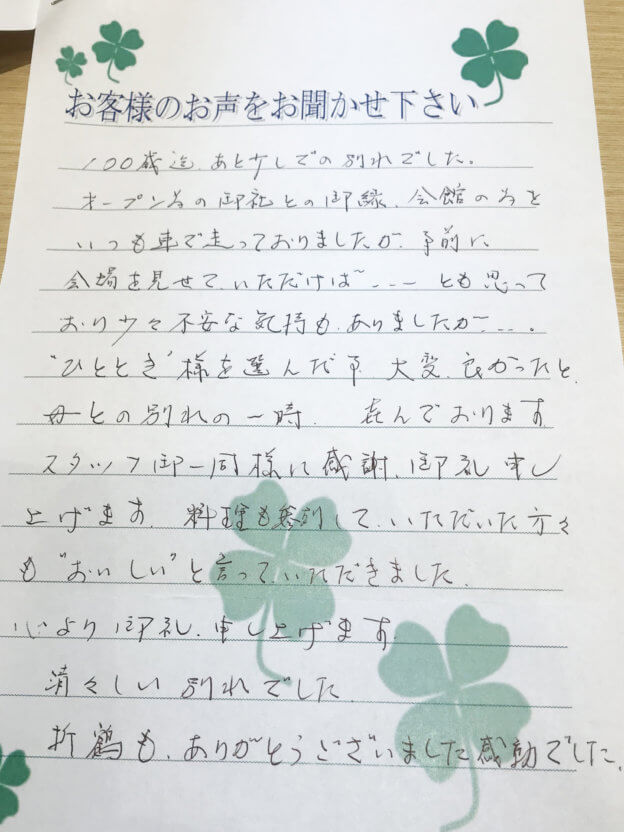 お客様のお声をお聞かせ下さい
100歳迄、あと少しでの別れでした。
オープン為の御社との御縁、会館の為を
いつも車で走っておりましたが、事前に
会場を見せて、いただけば~---とも思って
おり少々不安な気持も、ありましたが---。
"ひととき"様を選んだ事、大変、良かったと、
母との別れの一時、喜んでおります
スタッフ御一同様に感謝、御礼申し
上げます。料理も参列して、いただいた方々
も"おいしい"と言って、いただきました。
心より御礼、申し上げます。
清々しい別れでした。
折鶴も、ありがとうございました感動でした。